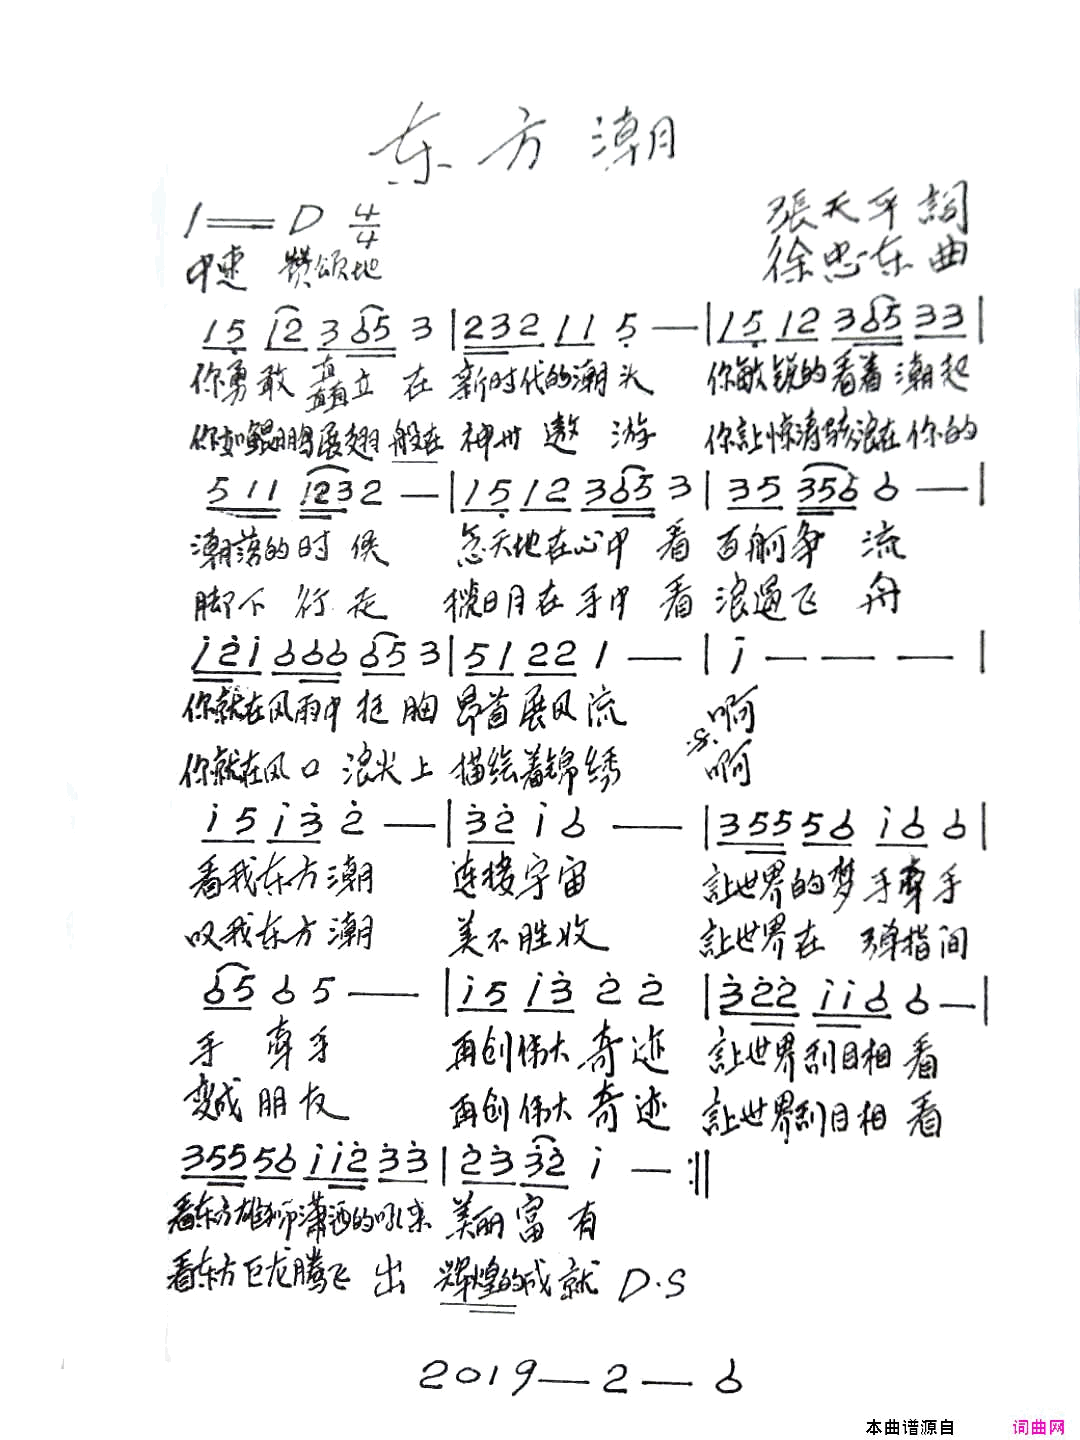 东方潮
1=D 4/4
張天平詞
中速 赞颂地
徐忠东曲
15 12 365 3 | 232 11 5 — | 15 12 365 33 |
你勇敢矗立在 新时代的潮头 你敏锐的看着潮起
你如鲲鹏展翅般在神州遨游 你让惊涛骇浪在你的
511 1232 — | 15 12 365 3 | 35 356 6 — |
潮落的时候 天地在心中看百舸争流
脚下行走 揽日月在手中看浪遏飞舟
i2i 666 65 3 | 51 22 1 — | i — — — |
你就在风雨中挺胸昂首展风流 啊
你就在风口浪尖上描绘着锦绣 啊
i5 i3 2 — | 32 i 6 — | 355 56 i6 6 |
看我东方潮 连接宇宙 让世界的梦手牵手
叹我东方潮 美不胜收 让世界在弹指间
65 6 5 — | i5 i3 2 2 | 322 ii6 6 — |
手牵手 再创伟大奇迹 让世界刮目相看
变成朋友 再创伟大奇迹 让世界刮目相看
355 56 ii2 33 | 23 32 i — :||
看东方雄狮潇洒的吼来 美丽富有
看东方巨龙腾飞出 辉煌的成就 D.S
2019—2—6
本曲谱源自 词曲网